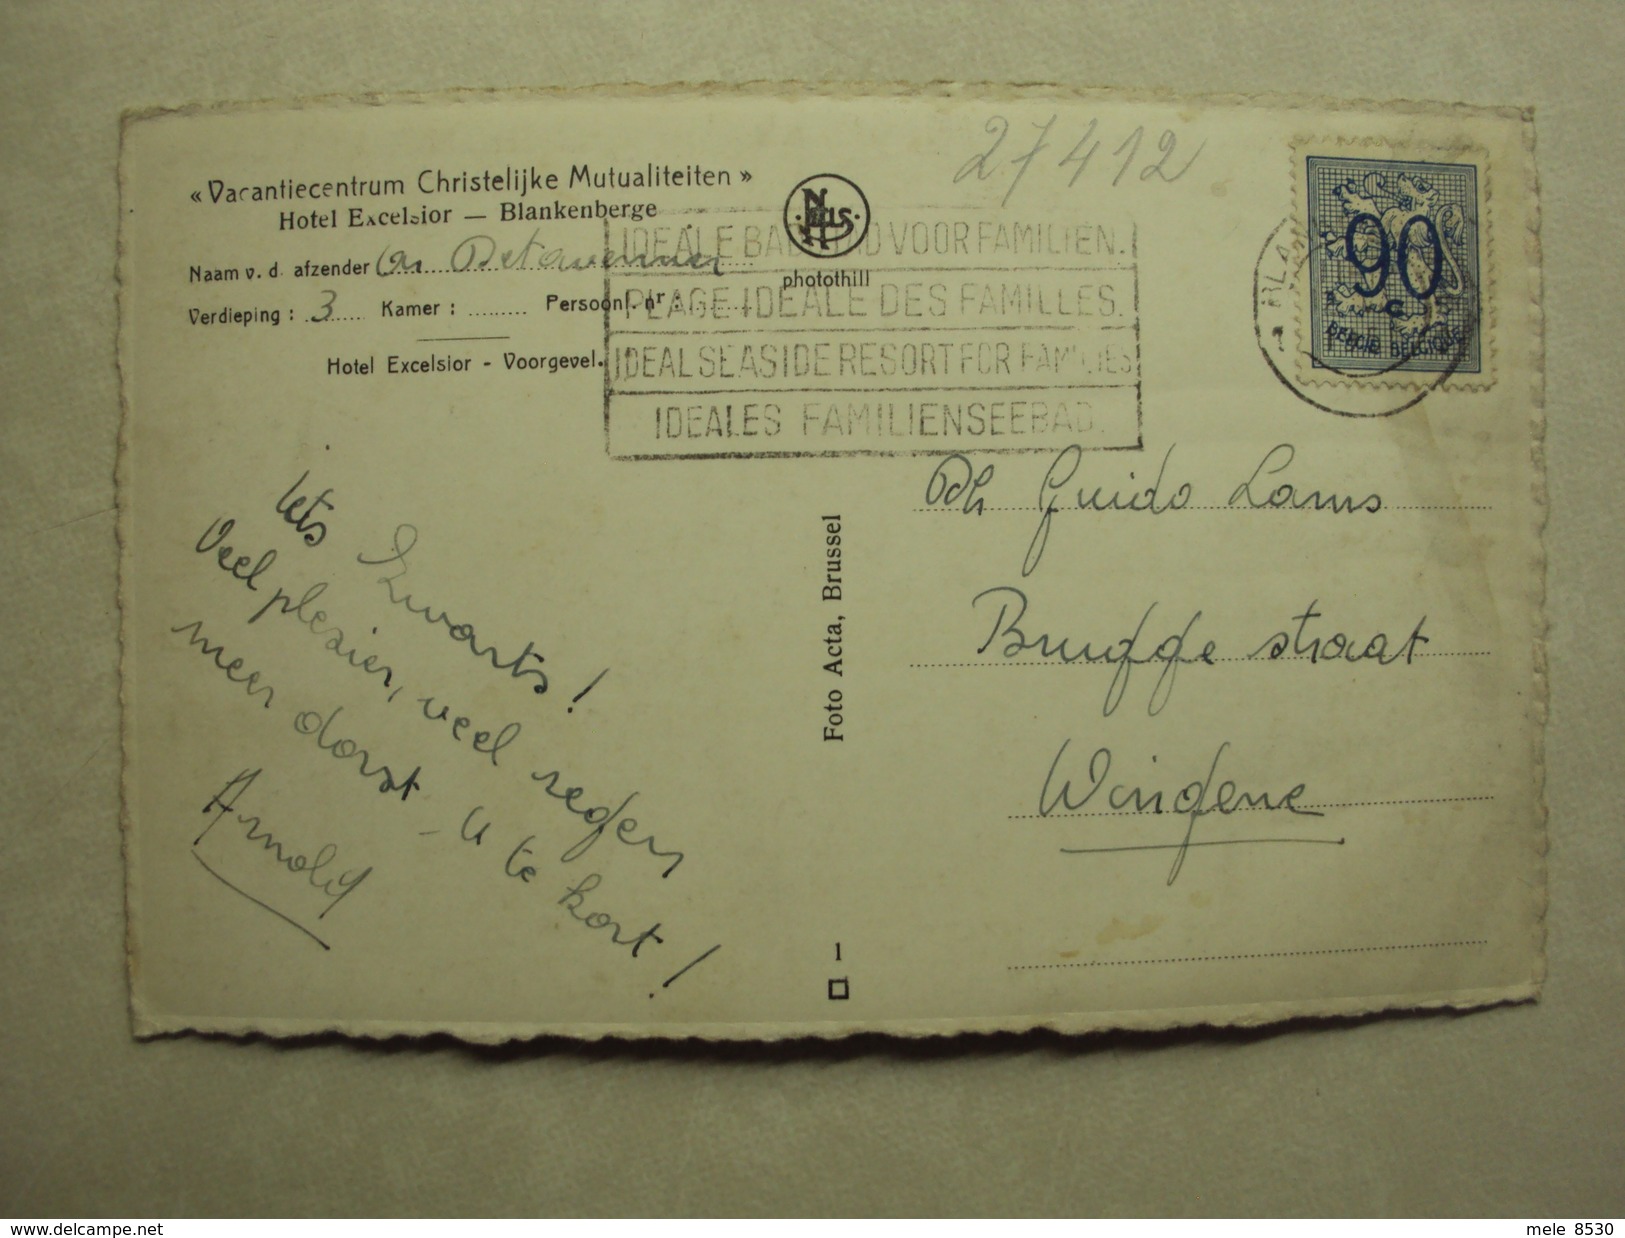 27412
« Vacantiecentrum Christelijke Mutualiteiten »
Hotel Excelsior — Blankenberge
Naam v. d. afzender
Verdieping : 3 Kamer : Persoonl. nr :
Hotel Excelsior - Voorgevel.
NELS
photothill
IDEALE BADSTAD VOOR FAMILIEN.
PLAGE IDEALE DES FAMILLES.
IDEAL SEASIDE RESORT FOR FAMILIES
IDEALES FAMILIENSEEBAD.
90
C
BELGIE BELGIQUE
BLA
1
iets Zwarts !
Veel plezier, veel regen
meer dorst - U te kort !
Arnold
Foto Acta, Brussel
1
Dh Guido Lams
Brugge straat
Wingene
www.delcampe.net
mele 8530